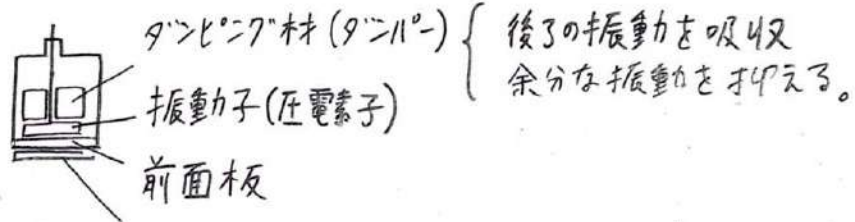 ダンピング材(ダンパー)
後ろの振動を吸収
余分な振動を抑える。
振動子(圧電素子)
前面板